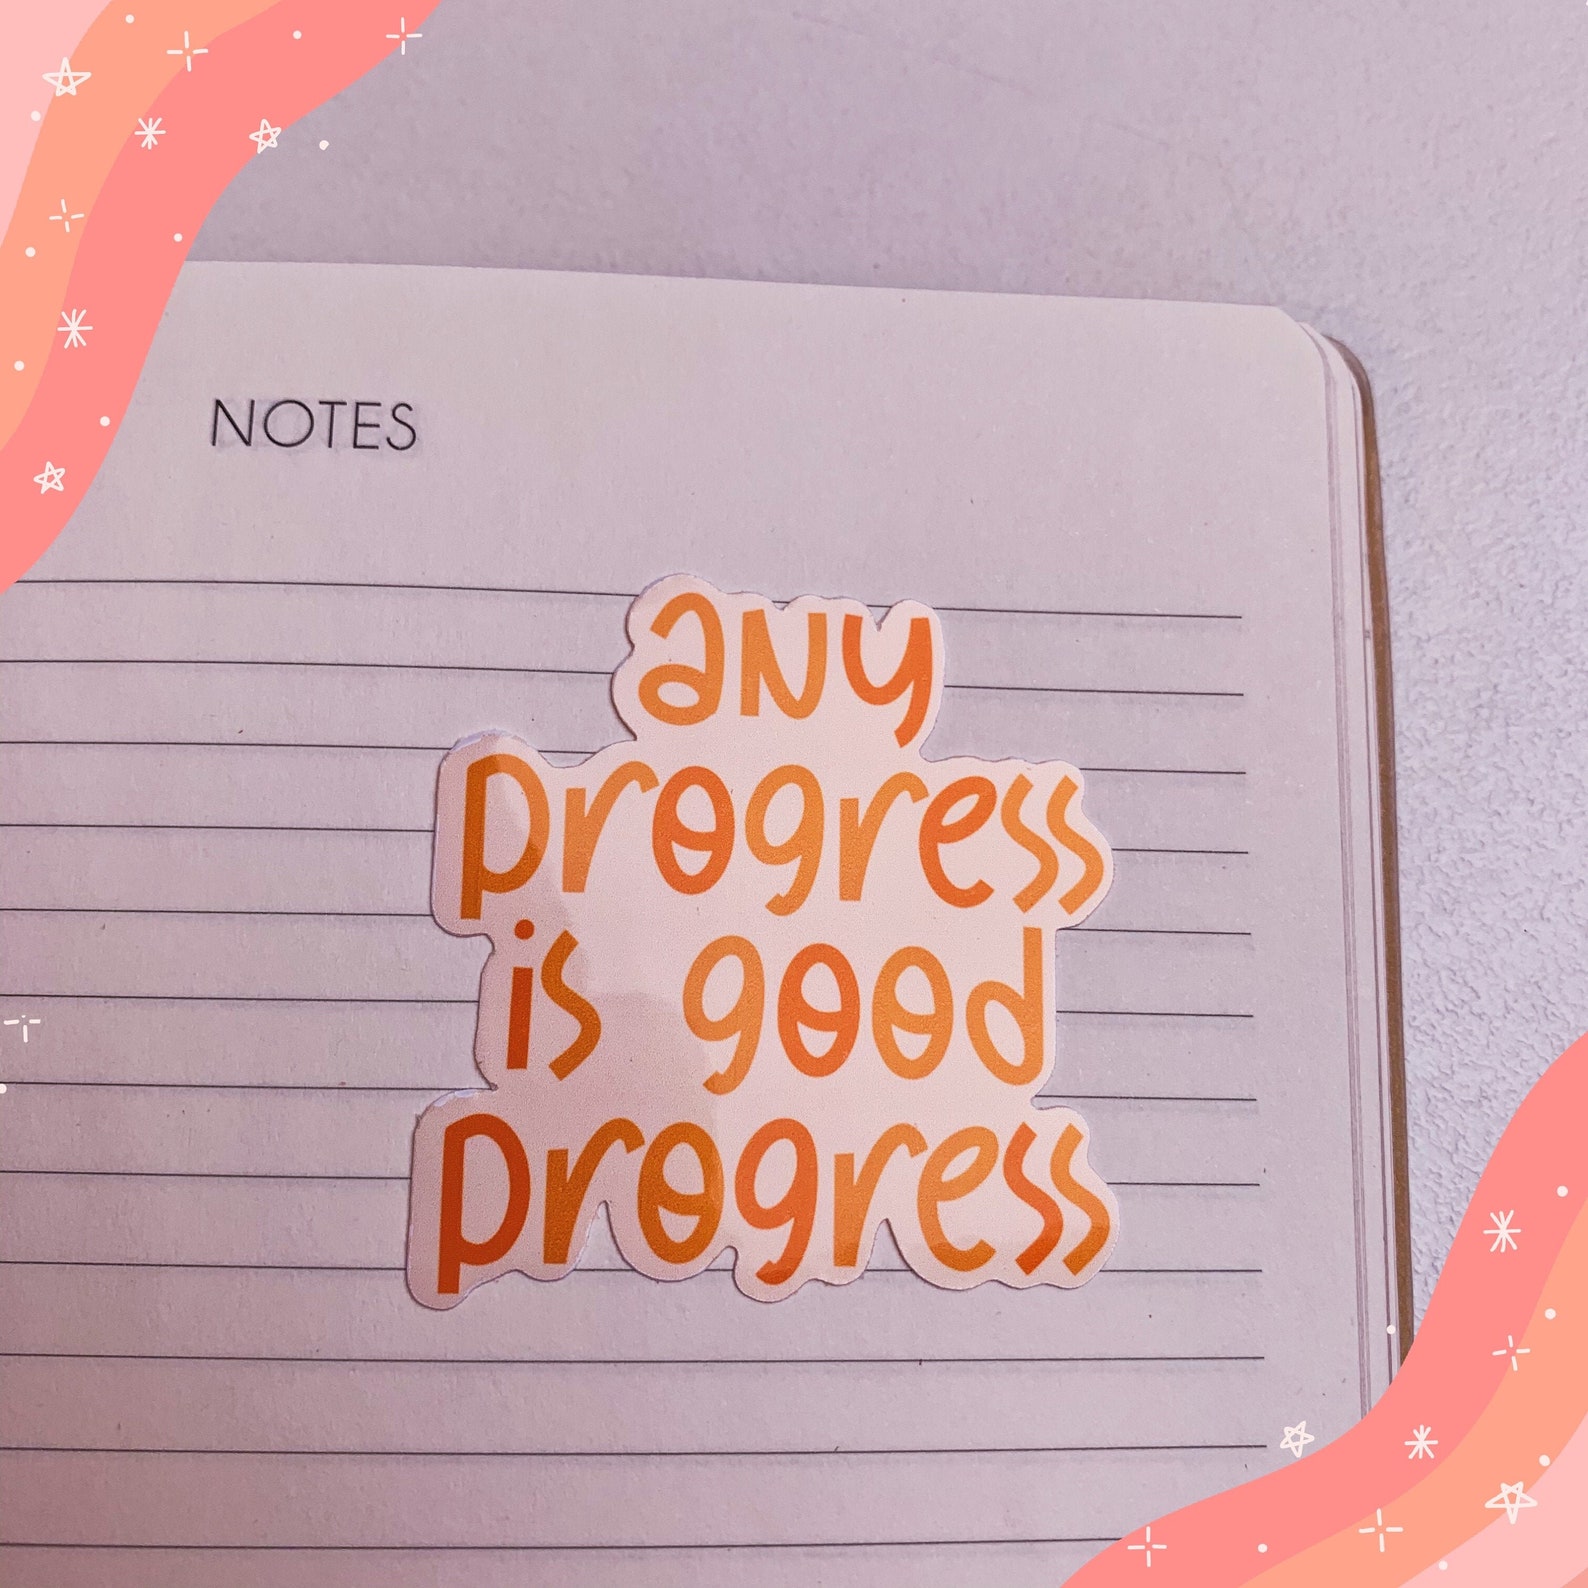 NOTES
any
progress
is good
progress